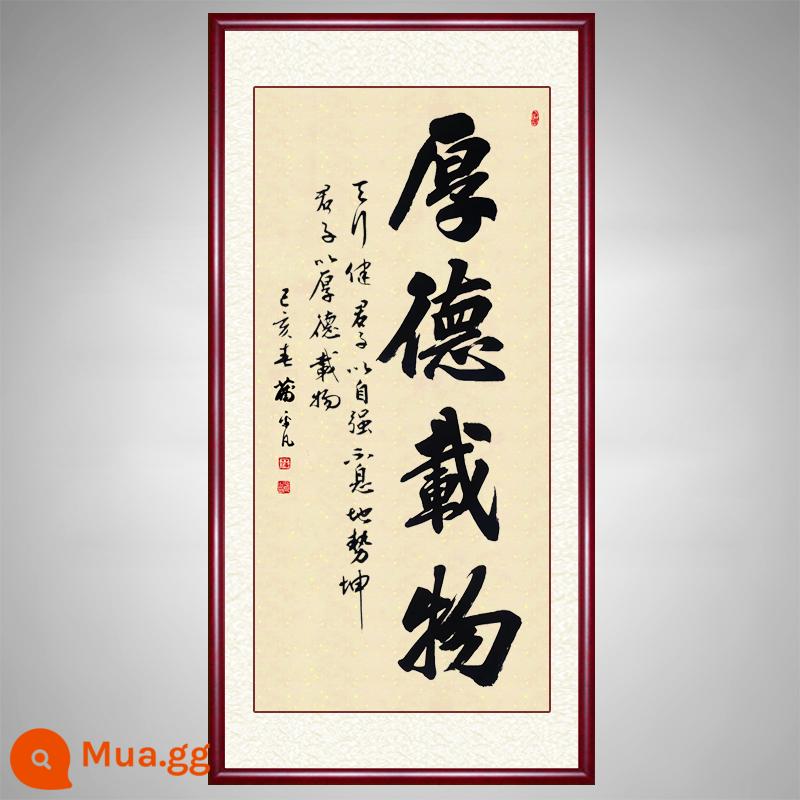 厚德載物
天行健君子以自强不息地勢坤
君子以厚德載物
己亥春蘭平凡
Mua.gg